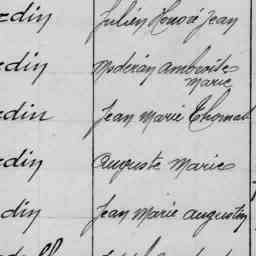 din Julien Honoré Jean
din Modéran Ambroise
Marie
din Jean Marie Thomas
din Auguste Marie
din Jean Marie Augustin